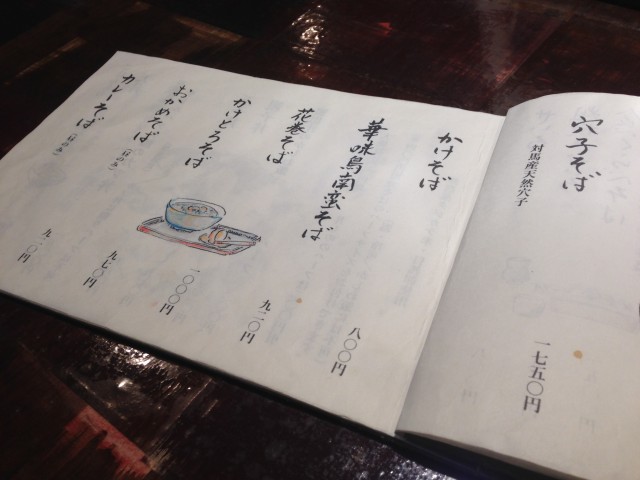 穴子そば
対馬産天然穴子
一七五〇円
かけそば
八〇〇円
華味鳥南蛮そば
九二〇円
花巻そば
一〇〇〇円
かけとろそば
九七〇円
おかめそば
カレーそば